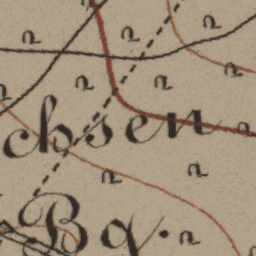 chsen
Bg.